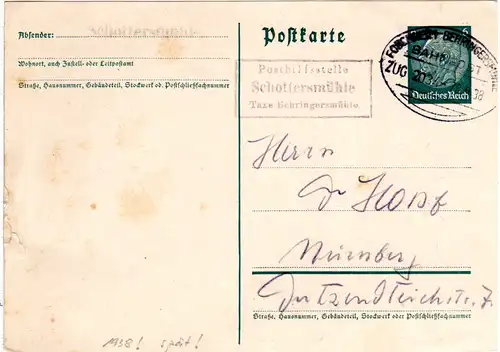 Absender:
Wohnort, auch Zustell- oder Leitpostamt
Straße, Hausnummer, Gebäudeteil, Stockwerk od. Postschließfachnummer
Postkarte
Posthilfsstelle
Schottersmühle
Taxe Behringersmühle
BEHRINGERSMÜHLE
BAHN
ZUG
6
Deutsches Reich
Herrn
Dr Hopf
Nürnberg
Dutzendteichstr. 7
Straße, Hausnummer, Gebäudeteil, Stockwerk oder Postschließfachnummer
1938! spät!